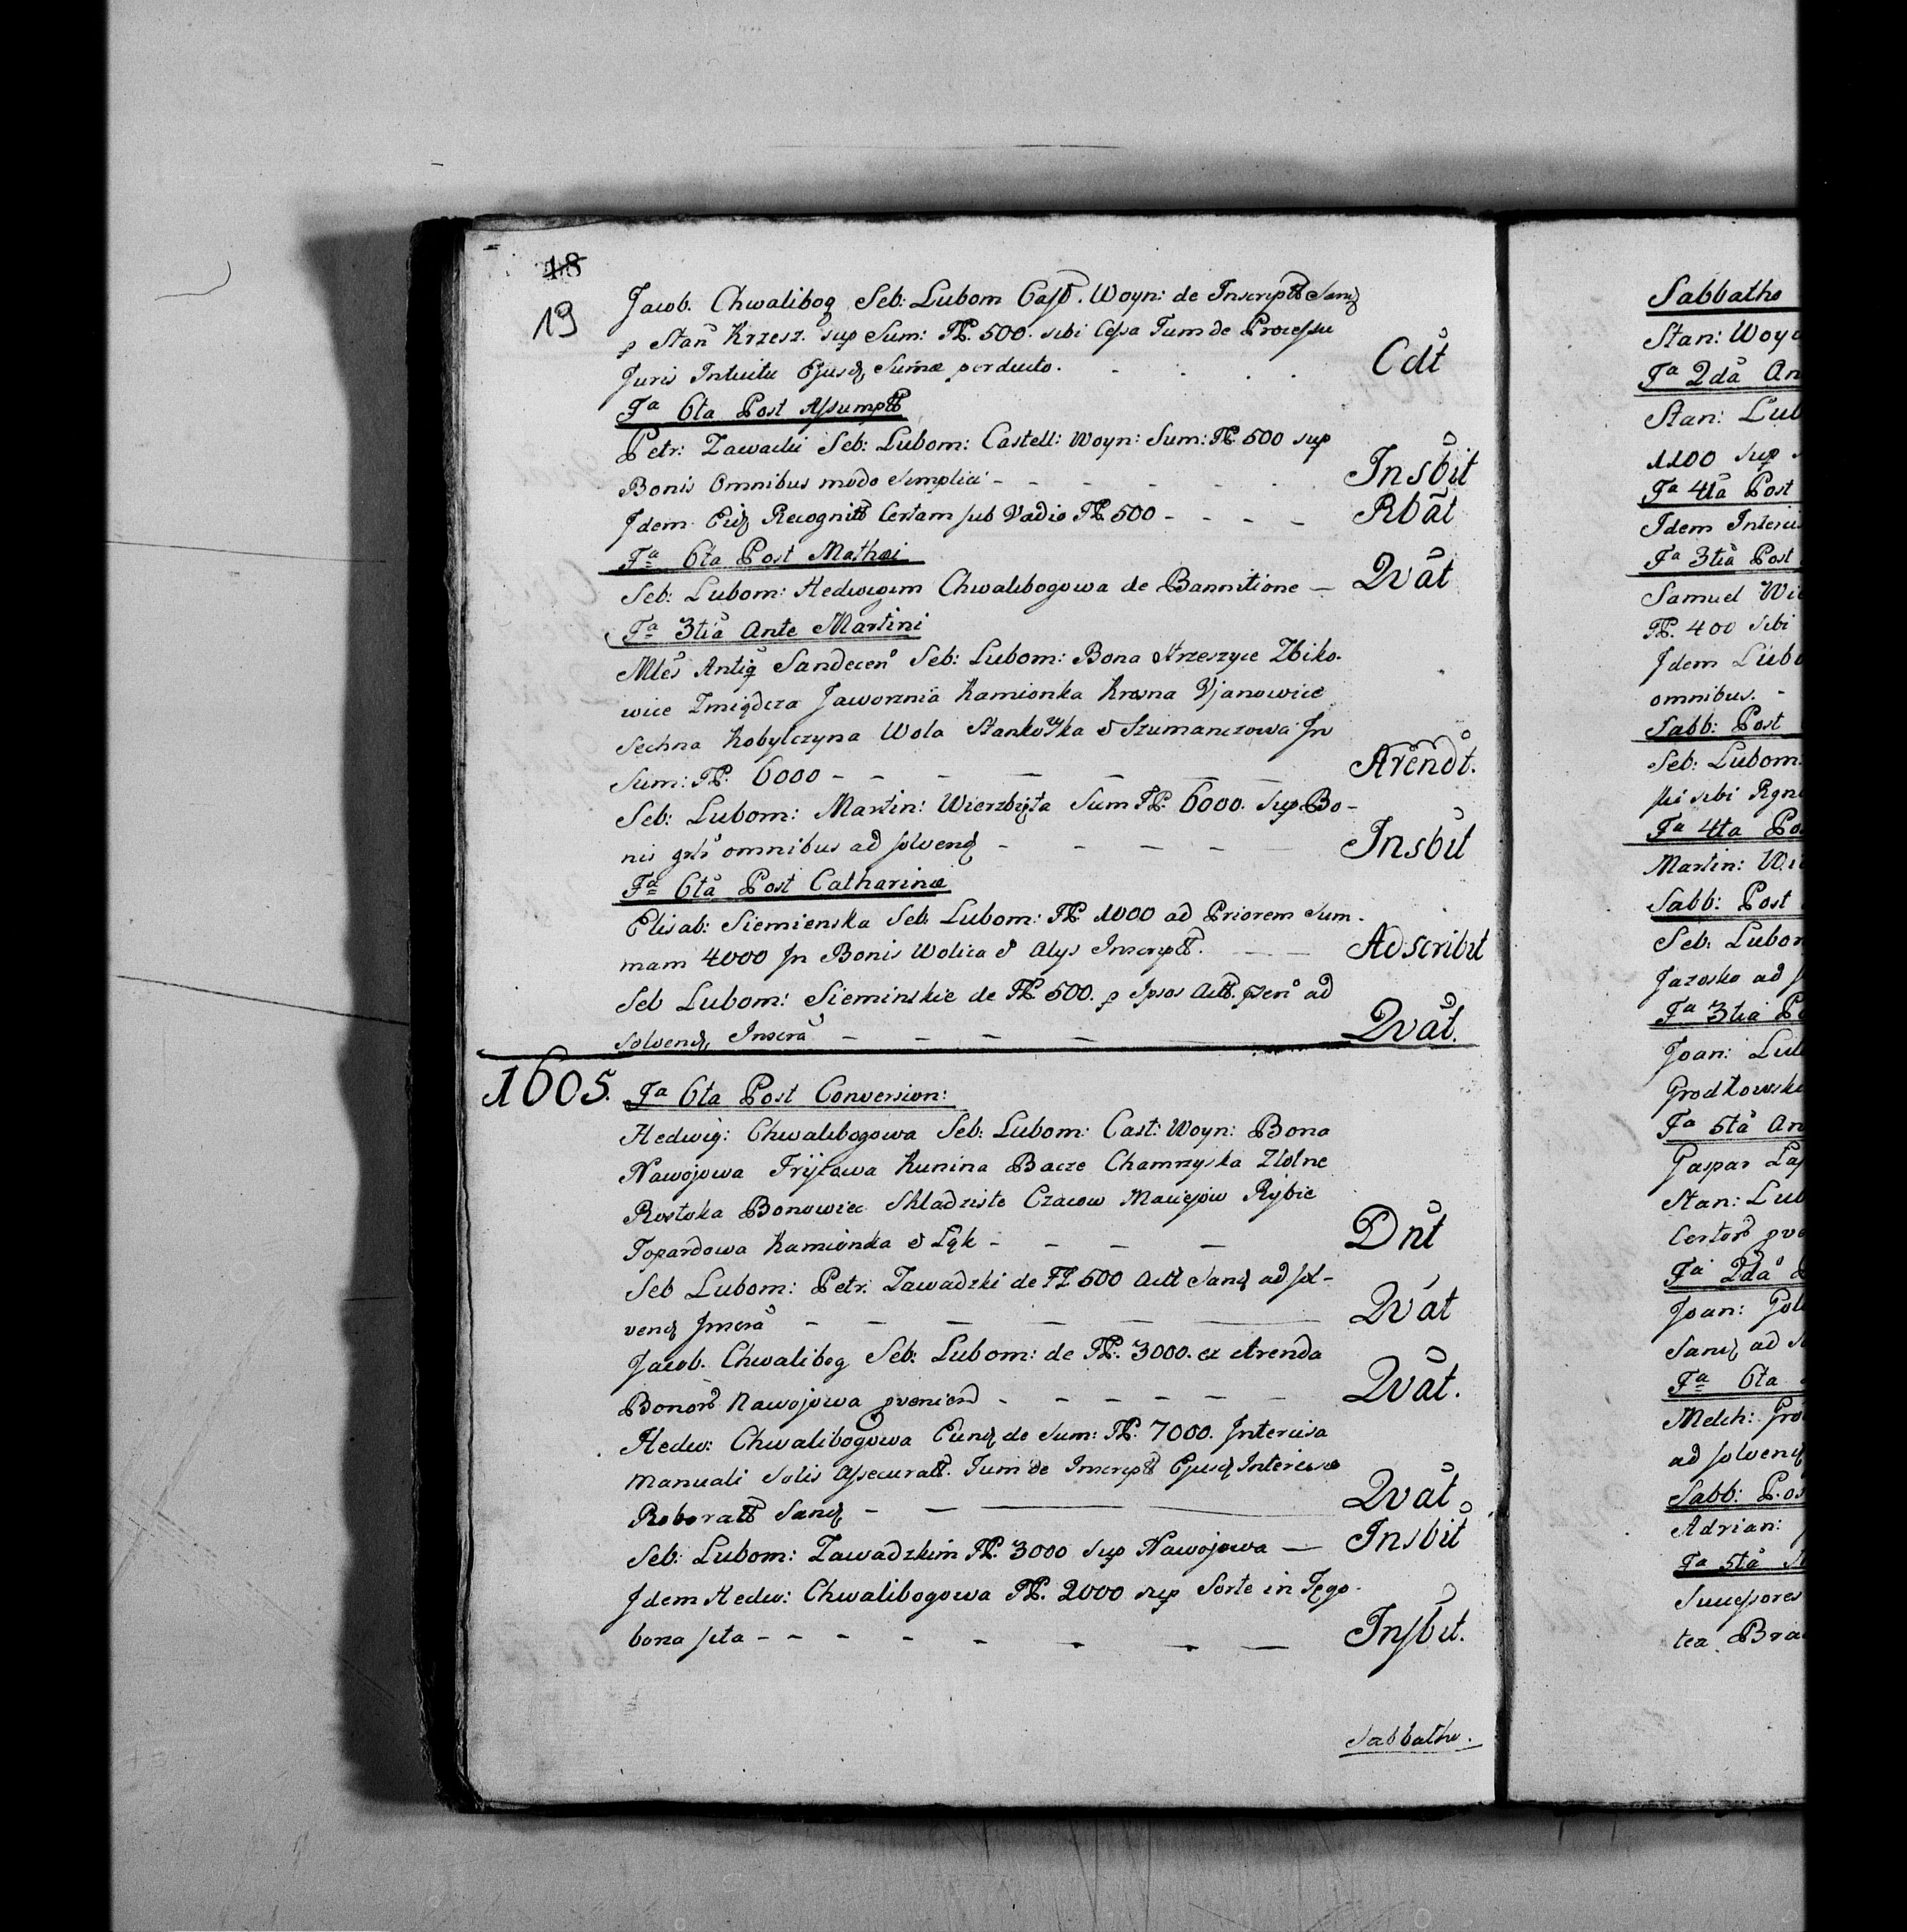 18
19
Jacob. Chwalibog Seb: Lubom Cast. Woyn: de Inscriptt Sanđ
p Stan Krzesz. sup Sum: Fl. 500. sibi Cessa Tum de Processu
Juris Intuitu Ejusđ Sumæ perducto. Cdt
Fa 6ta Post Assumptt
Petr: Zawadu Seb: Lubom: Castell: Woyn: Sum: Fl. 500 sup
Bonis Omnibus modo simplici - - - - Insbit
Idem Eid Recognitt Certam sub Vadio Fl. 500 - - - - Rbat
Fa 6ta Post Mathæi
Seb: Lubom: Hedwigem Chwalibogowa de Bannitione — Qvat
Fa 3tia Ante Martini
Mles Antiq Sandecen Seb: Lubom: Bona Strzeszyce Zbiko-
wice Zmiądcza Jaworznia Kamionka Krasna Vjanowice
Sechna Kobylczyna Wola Stankowska & Szumanczowa In
Sum: Fl. 6000 - - - - Arendt.
Seb: Lubom: Martin: Wierzbięta Sum Fl. 6000. Sup Bo-
nis grls omnibus ad solvend - - - - - Insbit
Fa 6ta Post Catharinæ
Elisab: Siemienska Seb. Lubom: Fl. 1000 ad Priorem Sum-
mam 4000 In Bonis Wolica & Alys Inscriptt. - - Adscribit
Seb Lubom: Sieminskie de Fl. 500. p Ipsos Actt. psen ad
solvend, Inscra - - - - Qvat.
1605. Fa 6ta Post Conversion:
Hedwig: Chwalibogowa Seb: Lubom: Cast: Woyn: Bona
Nawojowa Fryłowa Kunina Bacze Chamrzyska Złotne
Rostoka Bonowiec Składziste Czacow Maciejow Rybie
Topardowa Kamionka & Łęk - - - - Dnt
Seb Lubom: Petr: Zawadzki de Fl 500 Actt Sanđ ad sol-
vend Inscra - - - - - Qvat
Jacob. Chwalibog Seb: Lubom: de Fl. 3000. ex Arenda
Bonor Nawojowa pvenien - - - - - - Qvat.
Hedw: Chwalibogowa Eund de Sum: Fl. 7000. Intercisa
Manuali Solis Assecuratt. Tum de Inscriptt Ejusđ Intercisæ
Roboratt Sanđ - - — Qvat.
Seb: Lubom: Zawadzkim Fl. 3000 sup Nawojowa — Insbit
Idem Hedw: Chwalibogowa Fl. 2000 sup Sorte in Tęgo-
borza sita - - - - - - - - Insbit.
Sabbatho.
Sabbatho
Stan:
Fa 2da An
Stan: Lub
1100 sup
Fa 4ta Post
Idem
Fa 3tia Post
Samuel
Fl. 400 sibi
Idem Lubo
omnibus. -
Sabb: Post
Seb: Lubom:
sibi
Fa 4ta Po
Martin:
Sabb: Post
Seb: Lubom
ad
Fa 3tia Po
Joan: Lub
Grodkowsk
Fa 5ta An
Gaspar
Stan: Lub
Certor
Fa 2da
Joan:
Sanđ ad
Fa 6ta
Melch:
ad solvend
Sabb: Pos
Adrian:
Fa 5ta
Successores
tea Bra